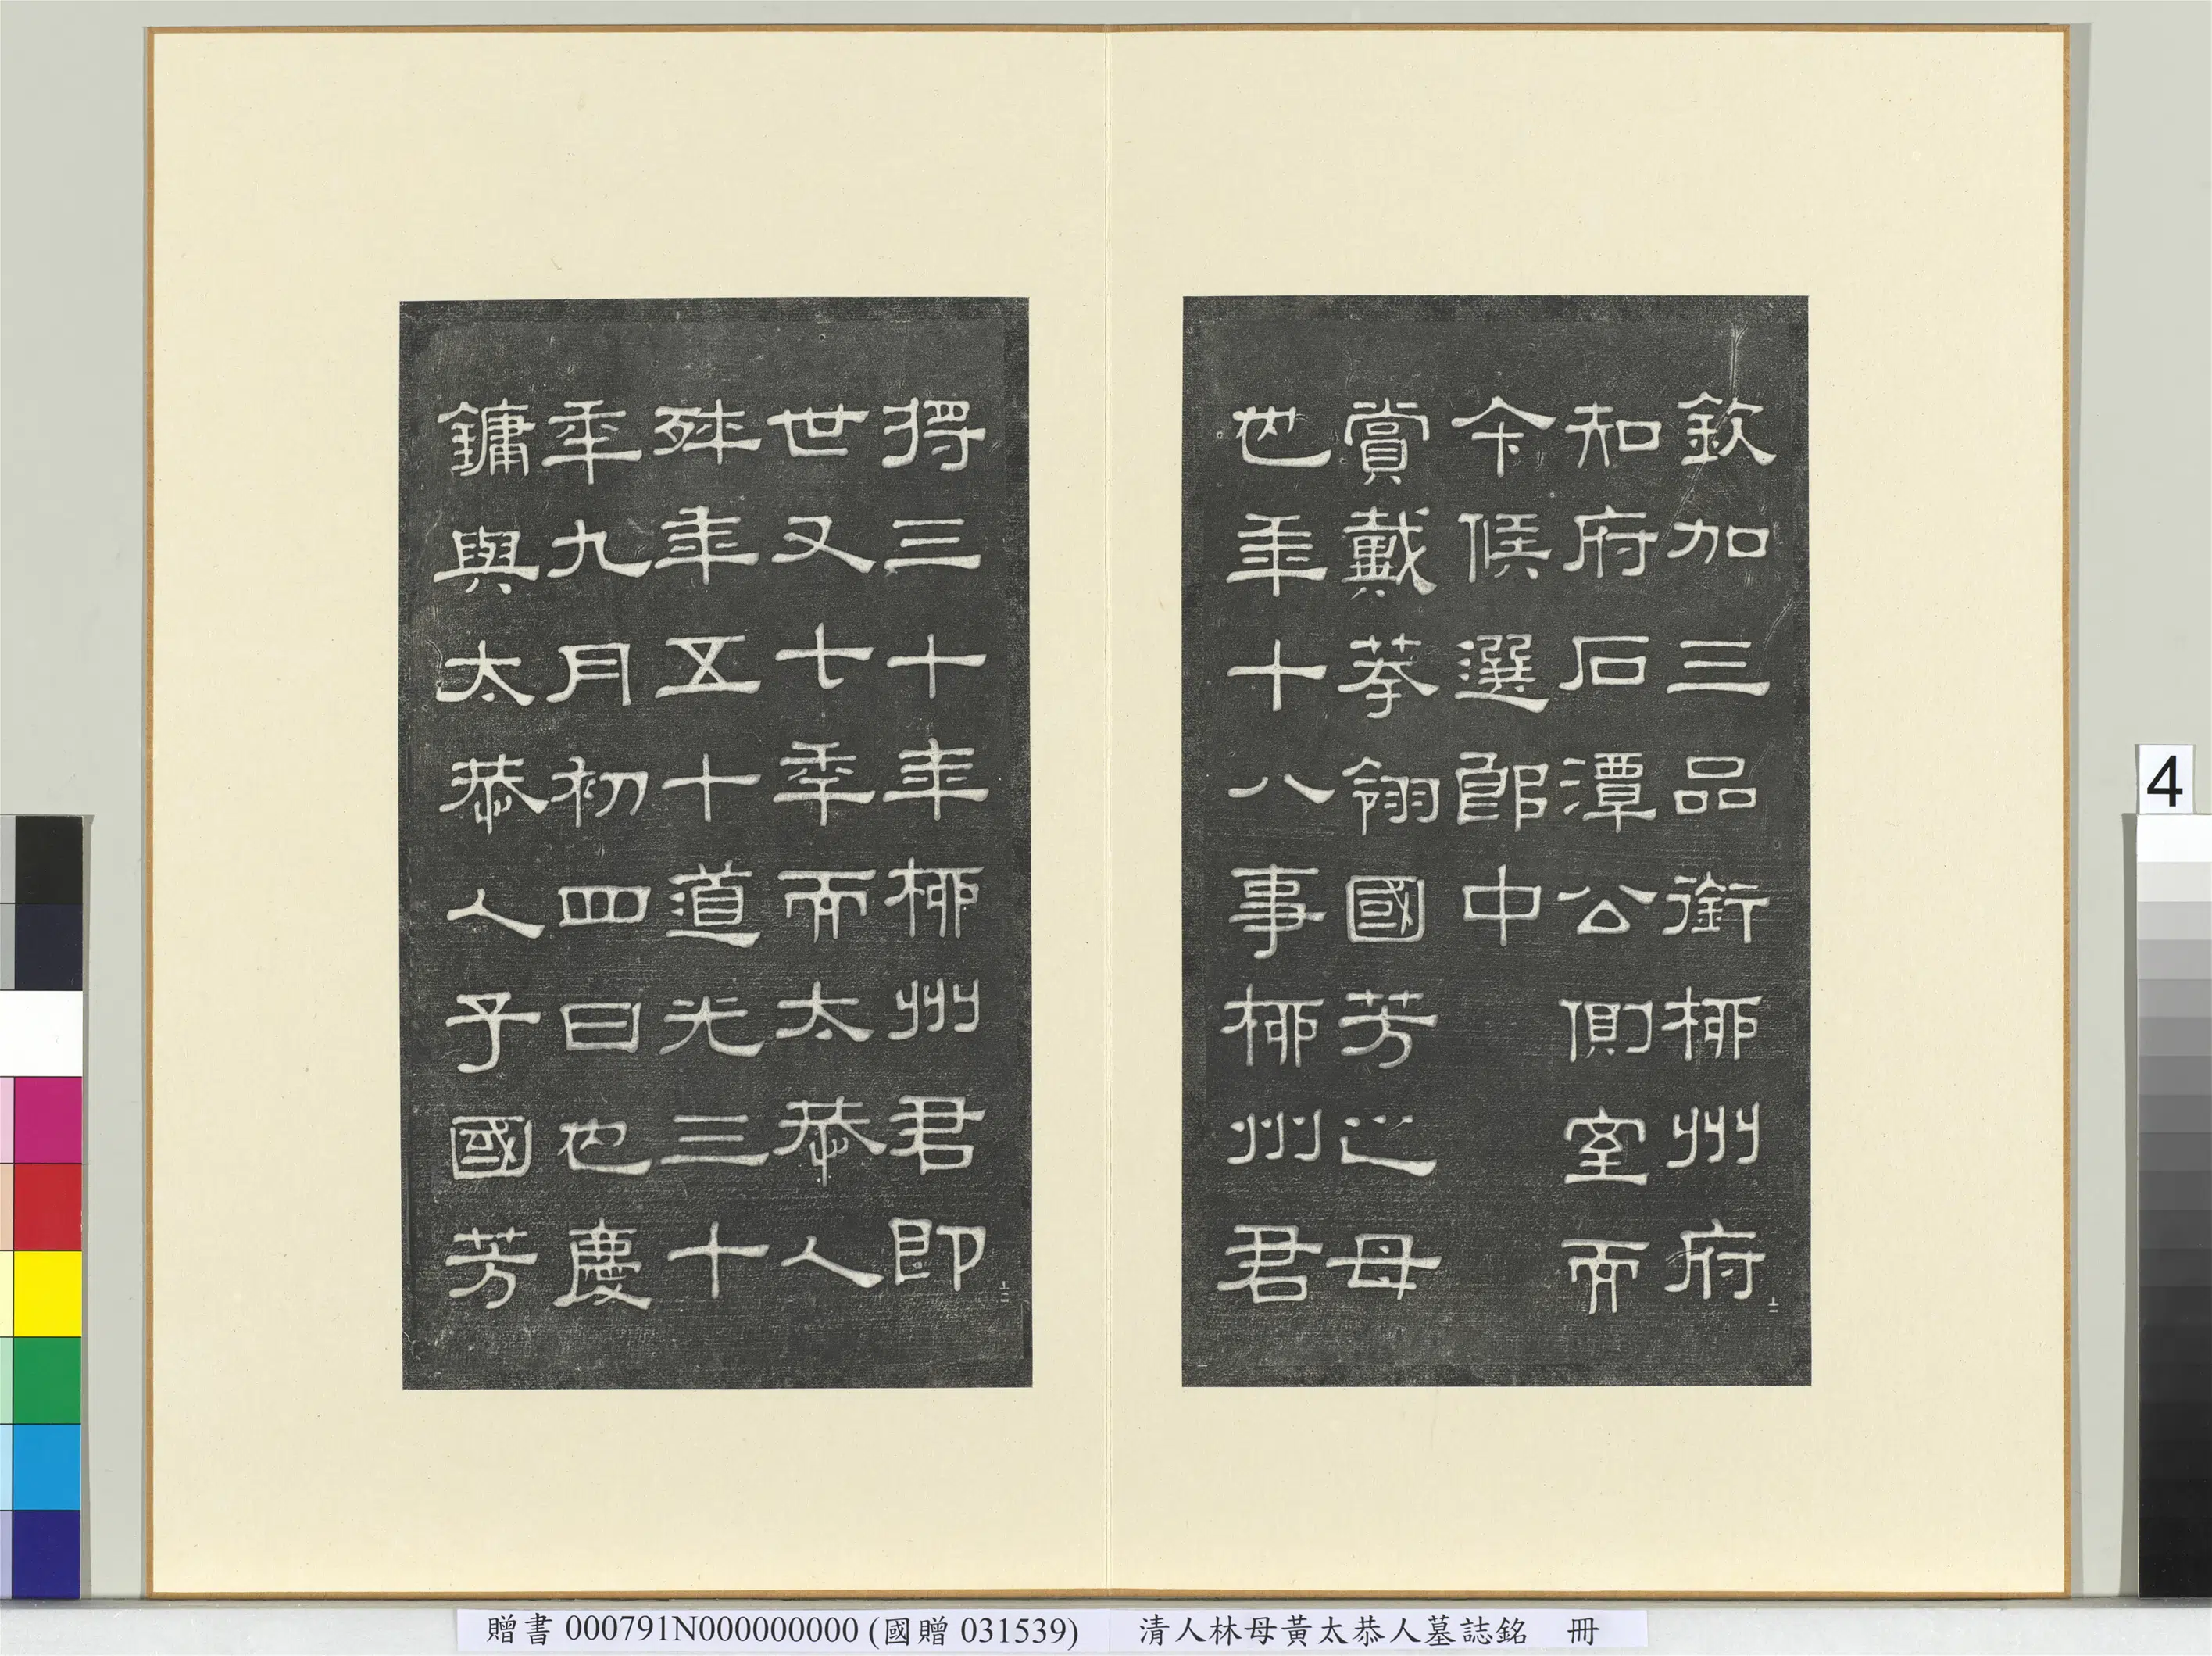 欽加三品銜桺州府
知府石潭公側室而
今候選郎中
賞戴荂翎國芳之母
也年十八事桺州君
得三十年桺州君即
世又七秊而太恭人
殊年五十道光三十
秊九月初四日也慶
鏞與太恭人子國芳
4
贈書 000791N000000000 (國贈 031539) 清人林母黃太恭人墓誌銘 冊